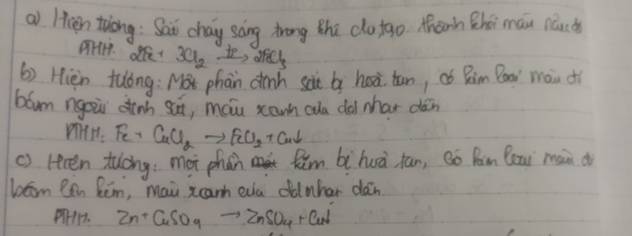 a) Hiện tượng: Sắt cháy sáng trong khí clo tạo thành khói màu nâu đỏ
PTHH: 2Fe + 3Cl₂ →(t°) 2FeCl₃
b) Hiện tượng: Một phần đinh sắt bị hoà tan, có kim loại màu đỏ
bám ngoài đinh sắt, màu xanh của dd nhạt dần
PTHH: Fe + CuCl₂ → FeCl₂ + Cu↓
c) Hiện tượng: một phần kẽm bị hoà tan, có kim loại màu đỏ
bám lên kẽm, màu xanh của dd nhạt dần
PTHH: Zn + CuSO₄ → ZnSO₄ + Cu↓